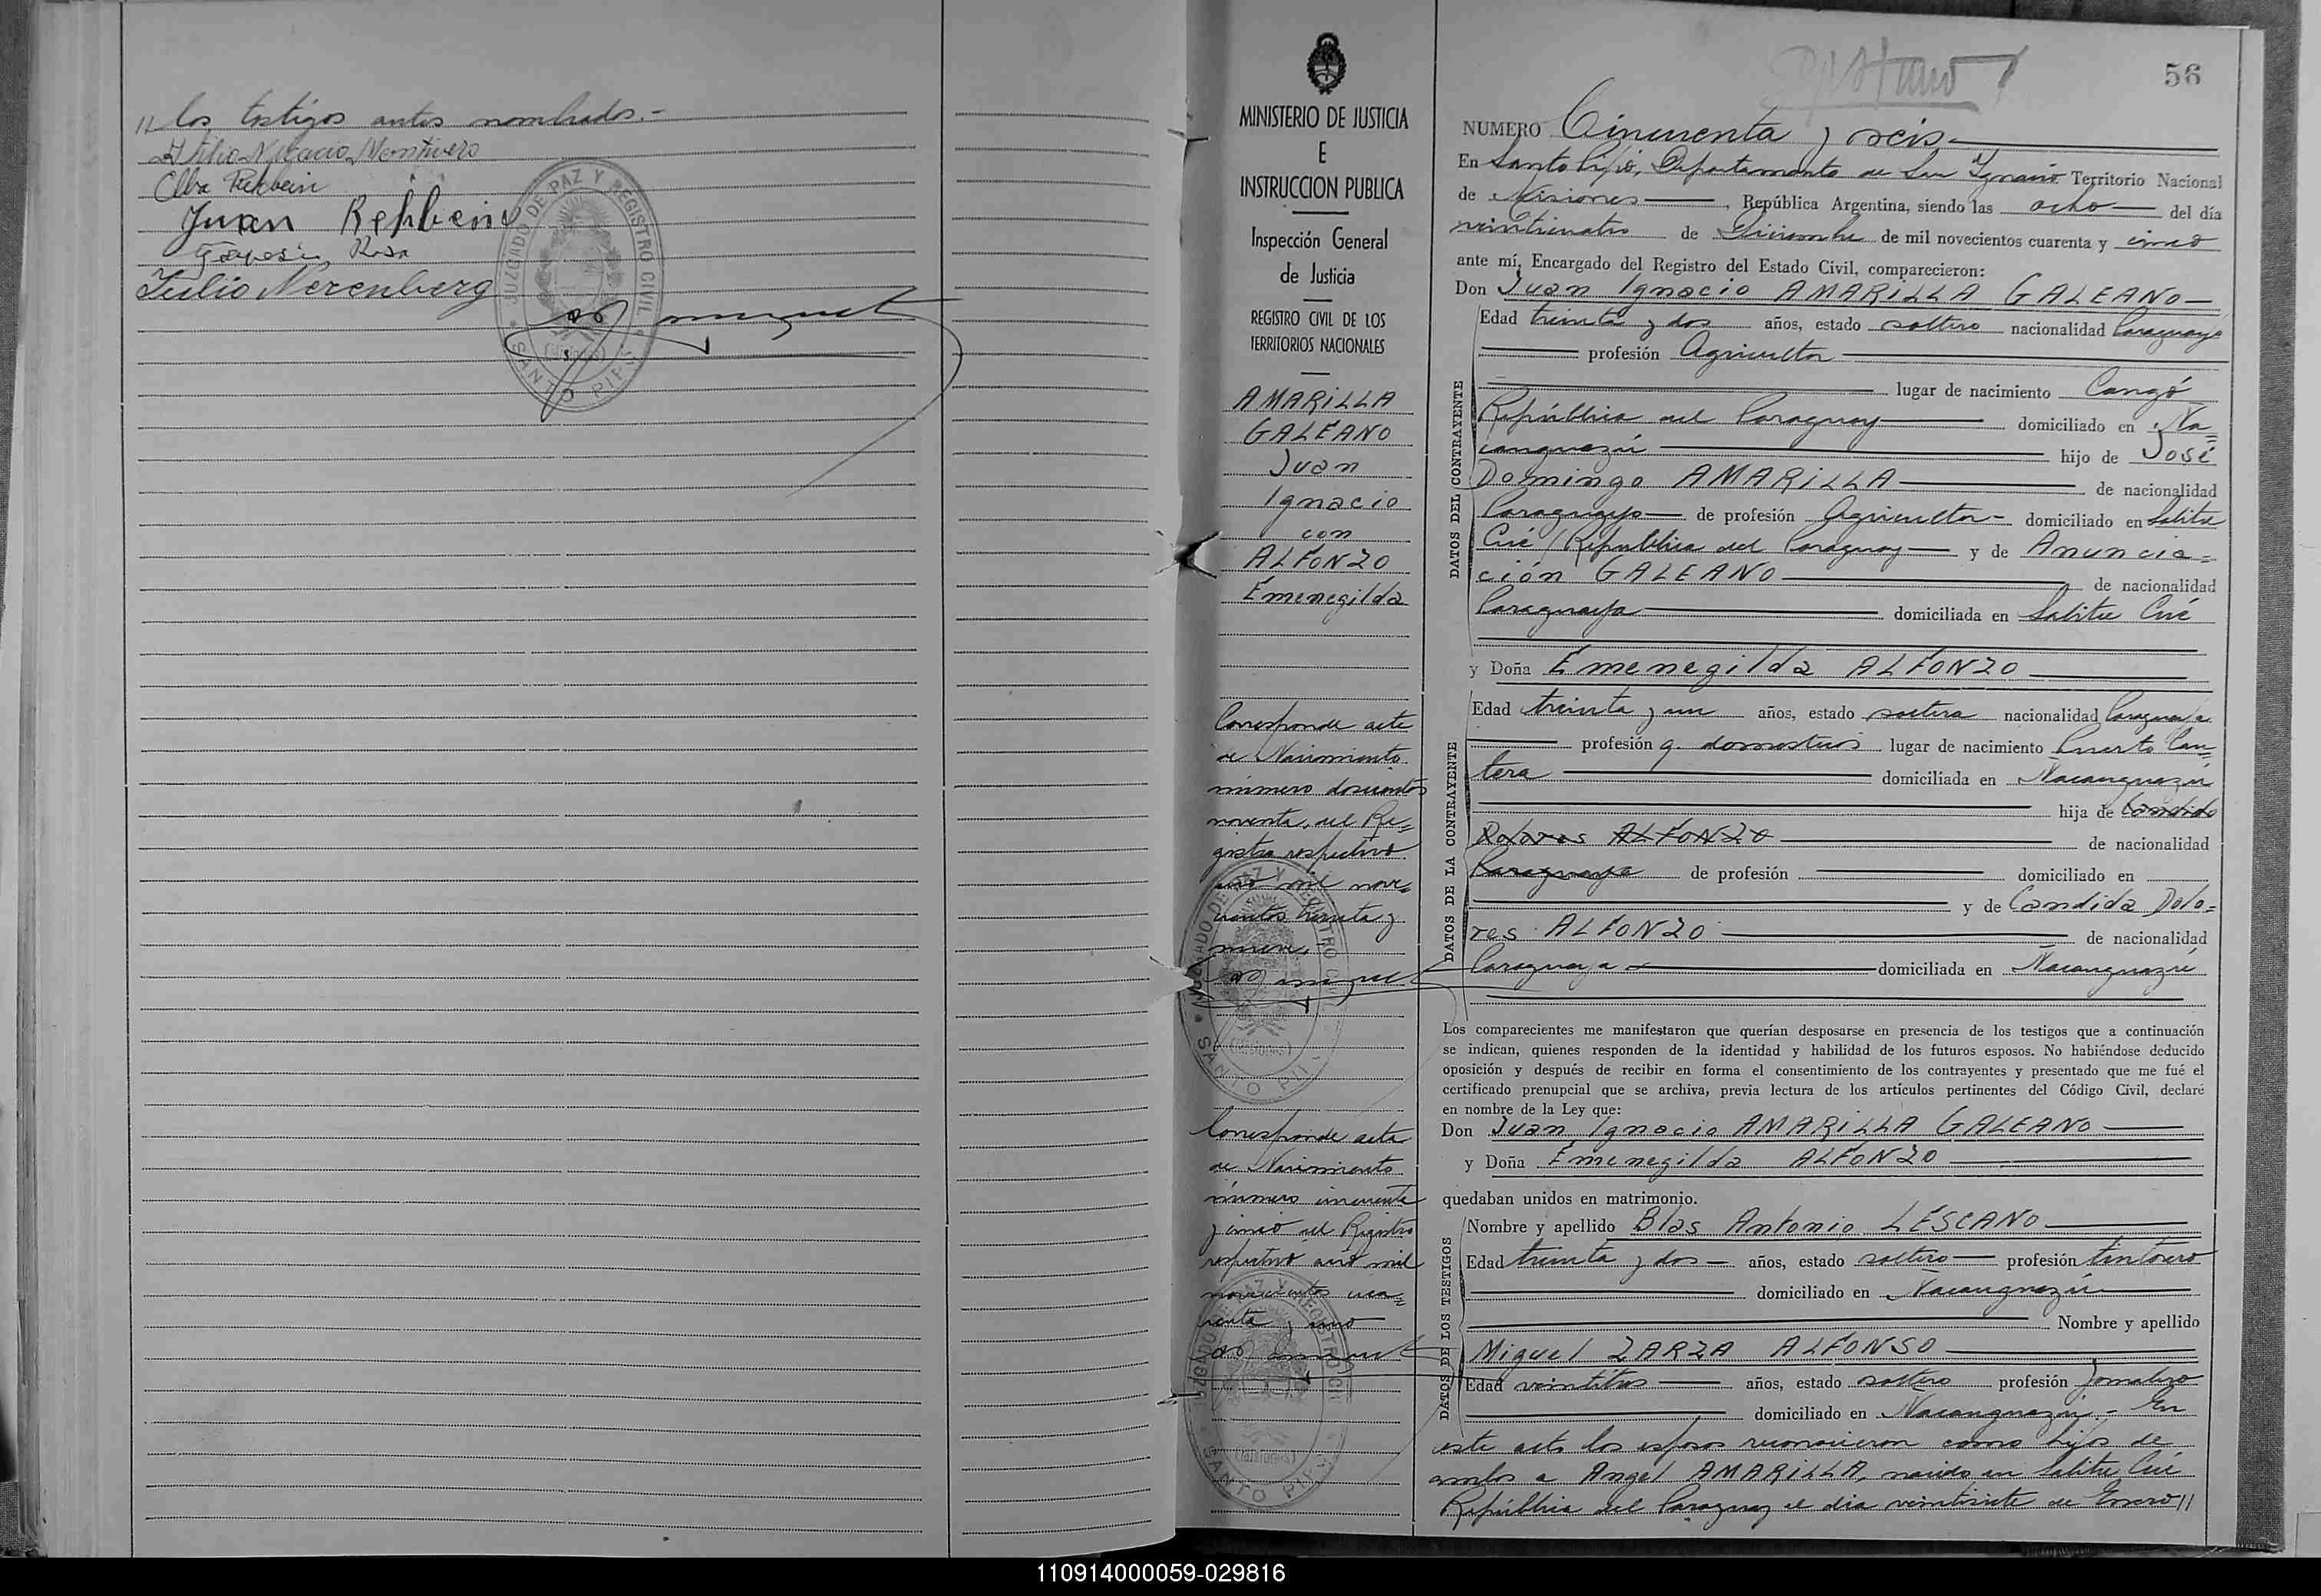 // los testigos antes nombrados.-
Atilio Nicacio Montivero
Elba Rehbein
Juan Rehbein
Rosa
Julio Nerenberg
JUZGADO DE PAZ Y REGISTRO CIVIL
SANTO PIPÓ
(MISIONES)
MINISTERIO DE JUSTICIA
E
INSTRUCCION PUBLICA
Inspección General
de Justicia
REGISTRO CIVIL DE LOS
TERRITORIOS NACIONALES
AMARILLA
GALEANO
Juan
Ignacio
con
ALFONZO
Emenegilda
Corresponde acta
de Nacimiento
número doscientos
noventa, del Re=
gistro respectivo
año mil nove=
cientos treinta y
nueve.-
JUZGADO DE PAZ Y REGISTRO CIVIL
SANTO PIPÓ
(MISIONES)
Corresponde acta
de Nacimiento
número cincuenta
y cinco del Registro
respectivo año mil
novecientos cua=
renta y uno
JUZGADO DE PAZ Y REGISTRO CIVIL
SANTO PIPÓ
(MISIONES)
56
NUMERO Cincuenta y seis
En Santo Pipó, Departamento de San Ignacio Territorio Nacional
de Misiones, República Argentina, siendo las ocho del día
veinticuatro de Diciembre de mil novecientos cuarenta y cinco
ante mí, Encargado del Registro del Estado Civil, comparecieron:
Don Juan Ignacio AMARILLA GALEANO
DATOS DEL CONTRAYENTE
Edad treinta y dos años, estado soltero nacionalidad Paraguayo
profesión Agricultor
lugar de nacimiento Cangó
República del Paraguay domiciliado en Ña=
canguazú hijo de José
Domingo AMARILLA de nacionalidad
Paraguayo de profesión Agricultor - domiciliado en Salitre
Cué (República del Paraguay y de Anuncia=
ción GALEANO de nacionalidad
Paraguaya domiciliada en Salitre Cué
y Doña Emenegilda ALFONZO
DATOS DE LA CONTRAYENTE
Edad treinta y un años, estado soltera nacionalidad Paraguaya
profesión q. domésticos lugar de nacimiento Puerto Can=
tera domiciliada en Ñacanguazú
hija de Candido
Dolores ALFONZO de nacionalidad
Paraguaya de profesión domiciliado en
y de Candida Dolo=
res ALFONZO de nacionalidad
Paraguaya domiciliada en Ñacanguazú
Los comparecientes me manifestaron que querían desposarse en presencia de los testigos que a continuación
se indican, quienes responden de la identidad y habilidad de los futuros esposos. No habiéndose deducido
oposición y después de recibir en forma el consentimiento de los contrayentes y presentado que me fué el
certificado prenupcial que se archiva, previa lectura de los artículos pertinentes del Código Civil, declaré
en nombre de la Ley que:
Don Juan Ignacio AMARILLA GALEANO
y Doña Emenegilda ALFONZO
quedaban unidos en matrimonio.
DATOS DE LOS TESTIGOS
Nombre y apellido Blas Antonio LESCANO
Edad treinta y dos años, estado soltero profesión tintorero
domiciliado en Ñacanguazú
Nombre y apellido
Miguel ZARZA ALFONSO
Edad veintitres años, estado soltero profesión Jornalero
domiciliado en Ñacanguazú - En
este acto los esposos reconocieron como hijos de
ambos a Angel AMARILLA, nacido en Salitre Cué
República del Paraguay el dia veintisiete de Enero //
110914000059-029816